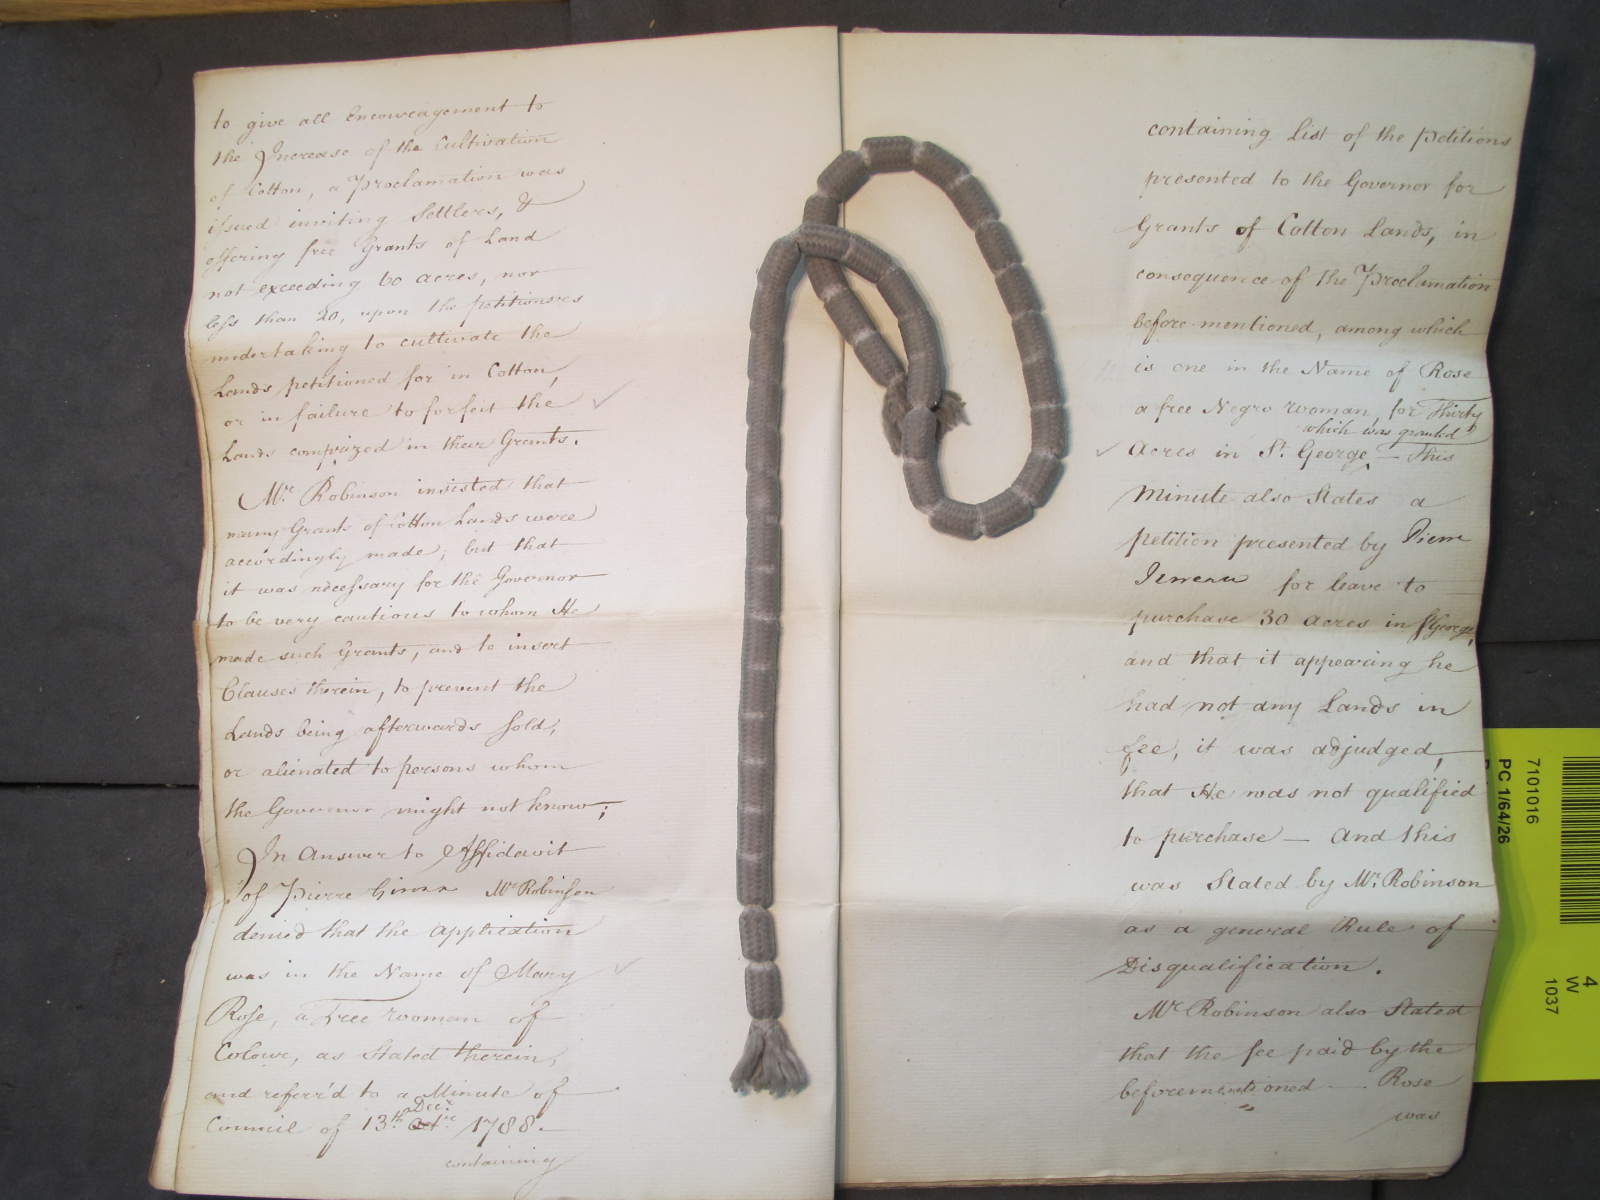 to give all Encouragement to
the Increase of the Cultivation
of Cotton, a Proclamation was
issued inviting Settlers, &
offering free Grants of Land
not exceeding 60 acres, nor
less than 20, upon the petitioners
undertaking to cultivate the
Lands petitioned for in Cotton,
or in failure to forfeit the
Lands comprized in their Grants.
Mr. Robinson insisted that
many Grants of Cotton Lands were
accordingly made; but that
it was necessary for the Governor
to be very cautious to whom He
made such Grants, and to insert
Clauses therein, to prevent the
Lands being afterwards sold,
or alienated to persons whom
the Governor might not know;
In Answer to Affidavit
of Pierre Mr Robinson
denied that the application
was in the Name of Mary
Rose, a Free woman of
Colour, as Stated therein,
and referr'd to a Minute of
Decr.
Council of 13th 1788.
containing
containing List of the Petitions
presented to the Governor for
Grants of Cotton Lands, in
consequence of the Proclamation
before mentioned, among which
is one in the Name of Rose
a free Negro woman, for Thirty
which was granted
Acres in St. George — This
Minute also States a
petition presented by
for leave to
purchase 30 acres in St George,
and that it appearing he
had not any Lands in
fee, it was adjudged,
that He was not qualified
to purchase — And this
was Stated by Mr. Robinson
as a general Rule of
Disqualification.
Mr Robinson also Stated
that the fee paid by the
beforementioned — Rose
was
7101016
PC 1/64/26
4
W
1037